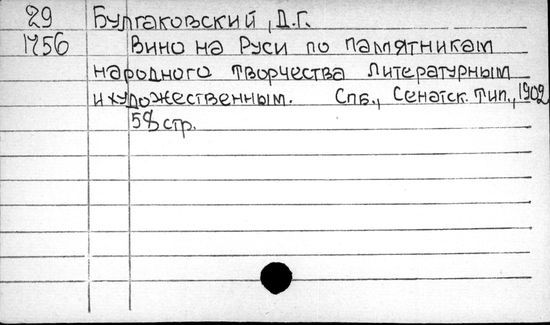 29 Булгаковский, Д.Г.
1756 Вино на Руси по памятникам
народного творчества литературным
и художественным. Спб., Сенатск. тип., 1902
58 стр.